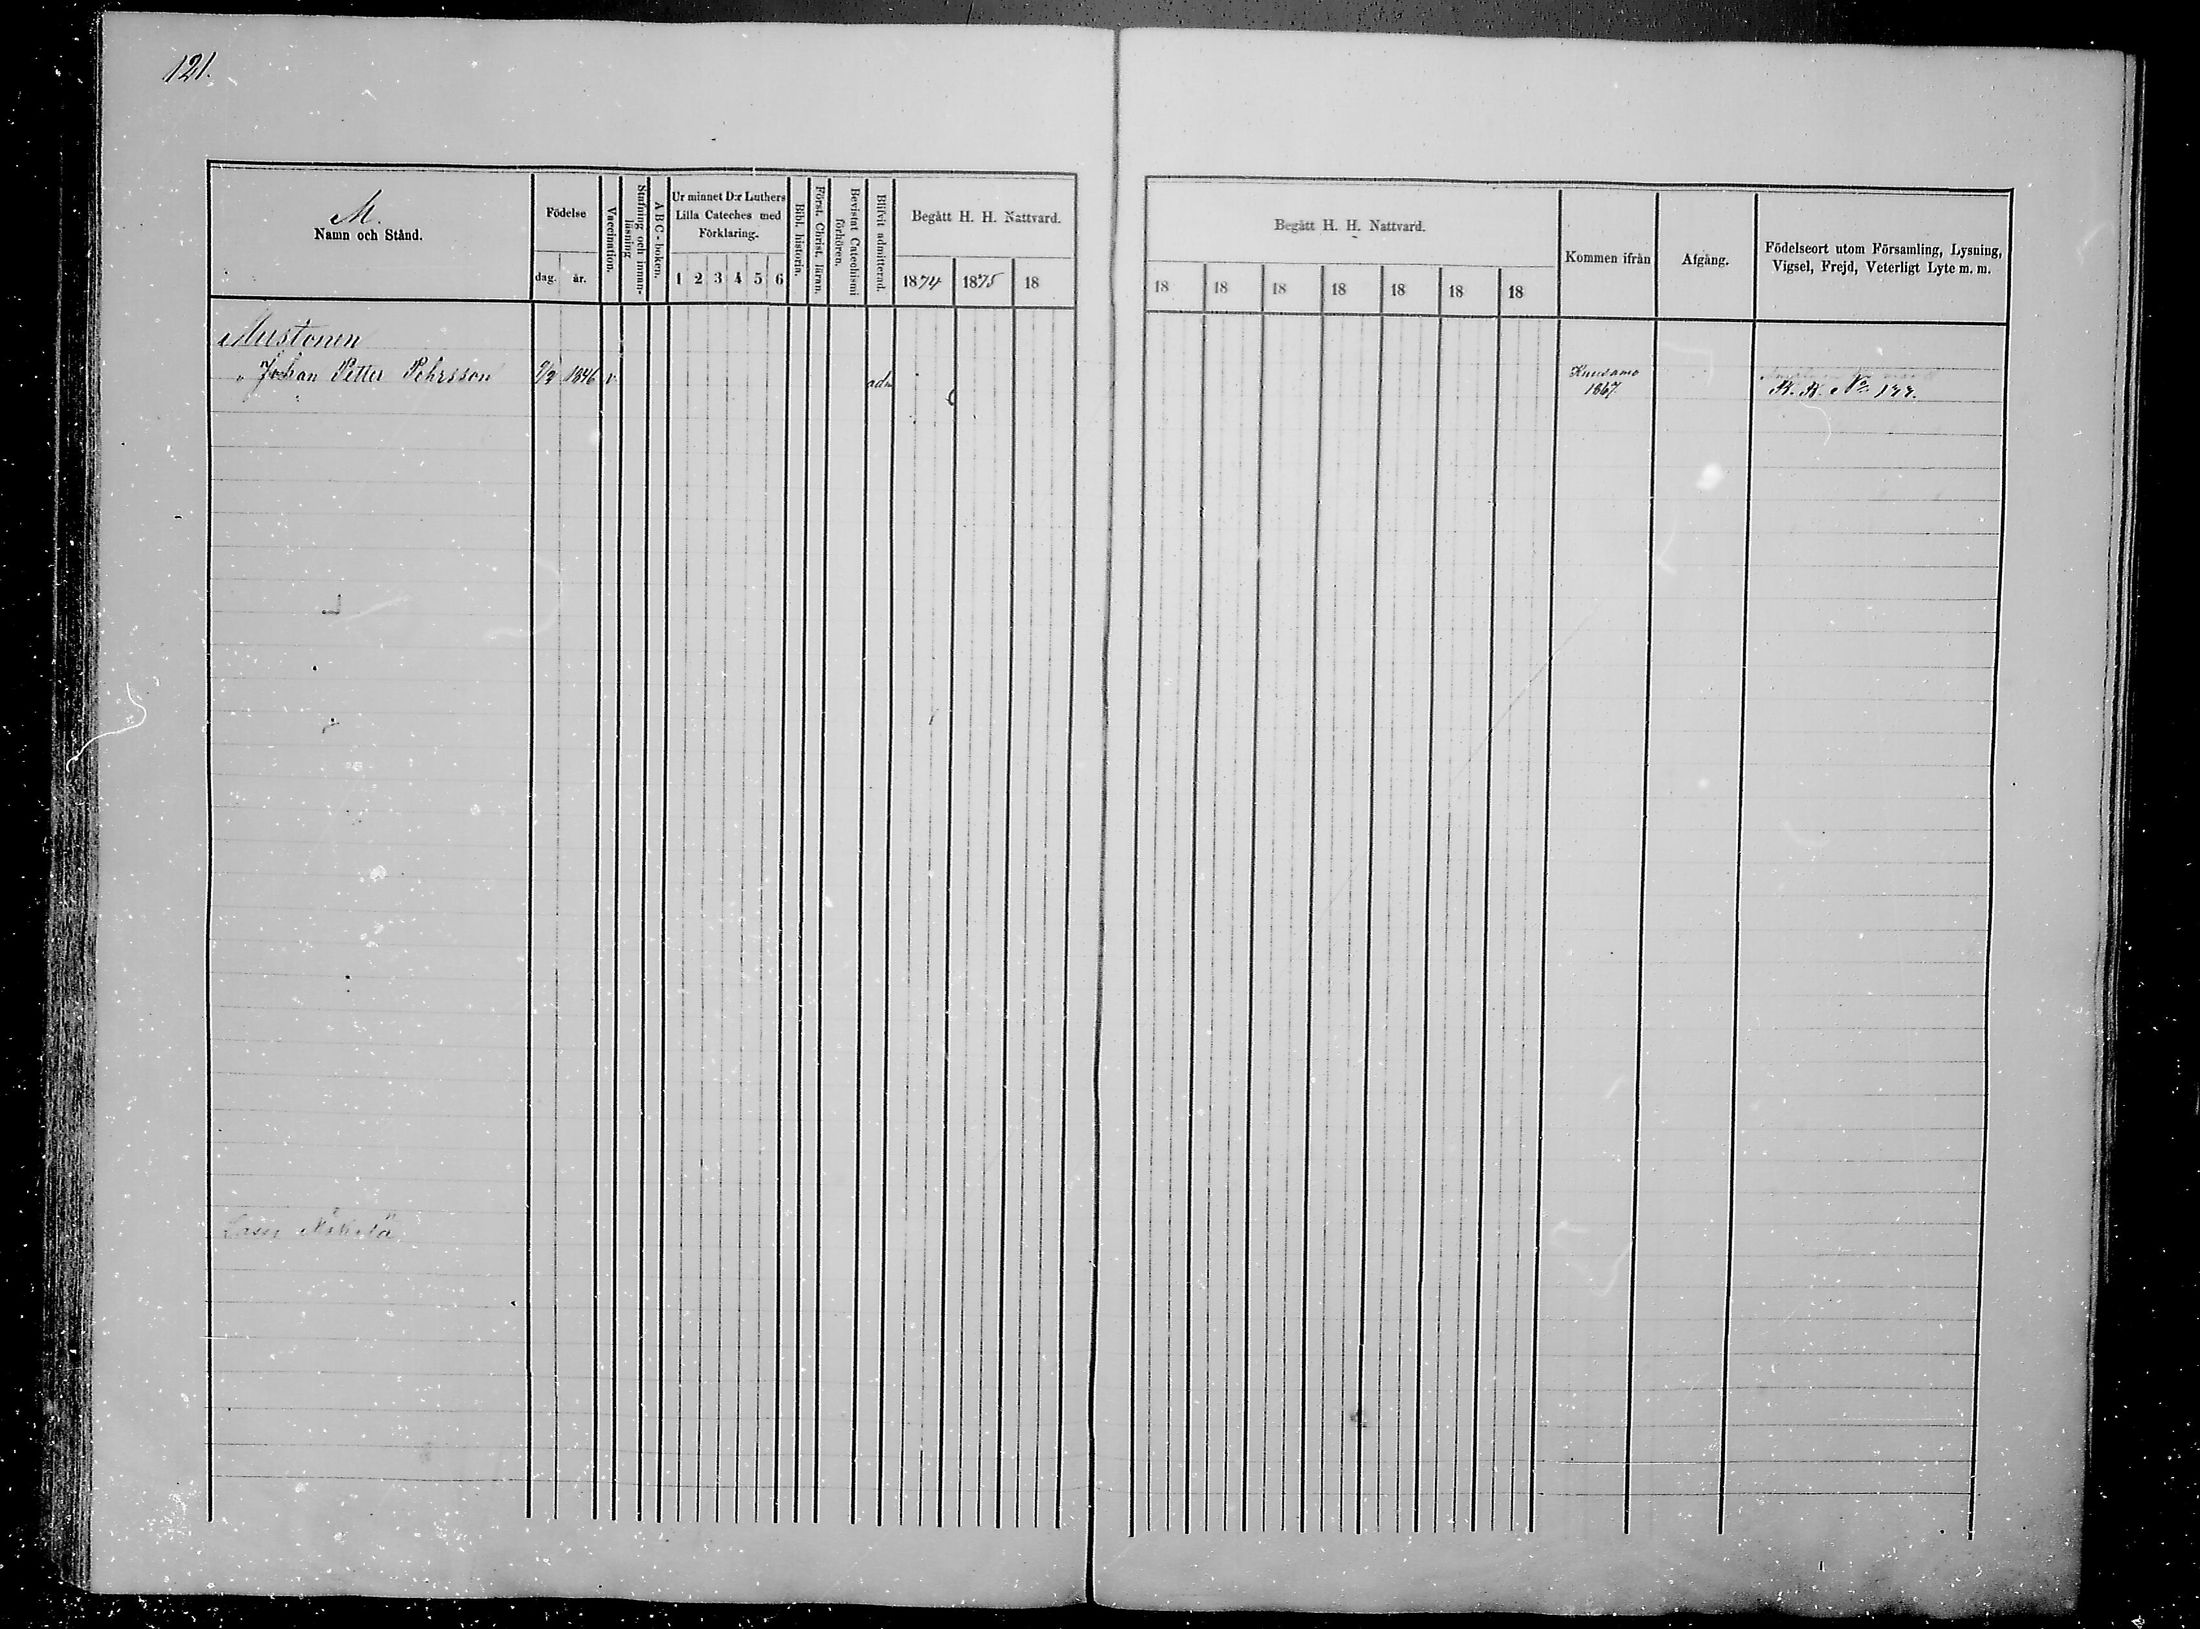 121.
M.
Namn och Stånd.
Födelse
dag. år.
Vaccination.
Stafning och innan-
läsning
A B C-boken.
Ur minnet D:r Luthers
Lilla Cateches med
Förklaring.
1 2 3 4 5 6
Bibl. historia.
Först. Christ. läran.
Bevistat Catechismi
förhören.
Blifvit admitterad.
Begått H. H. Nattvard.
1874 1875 18
Begått H. H. Nattvard.
18 18 18 18 18 18 18
Kommen ifrån
Afgång.
Födelseort utom Församling, Lysning,
Vigsel, Frejd, Veterligt Lyte m. m.
Mustonen
" Johan Petter Pehrsson 1846 v. adm
Kuusamo
1867.